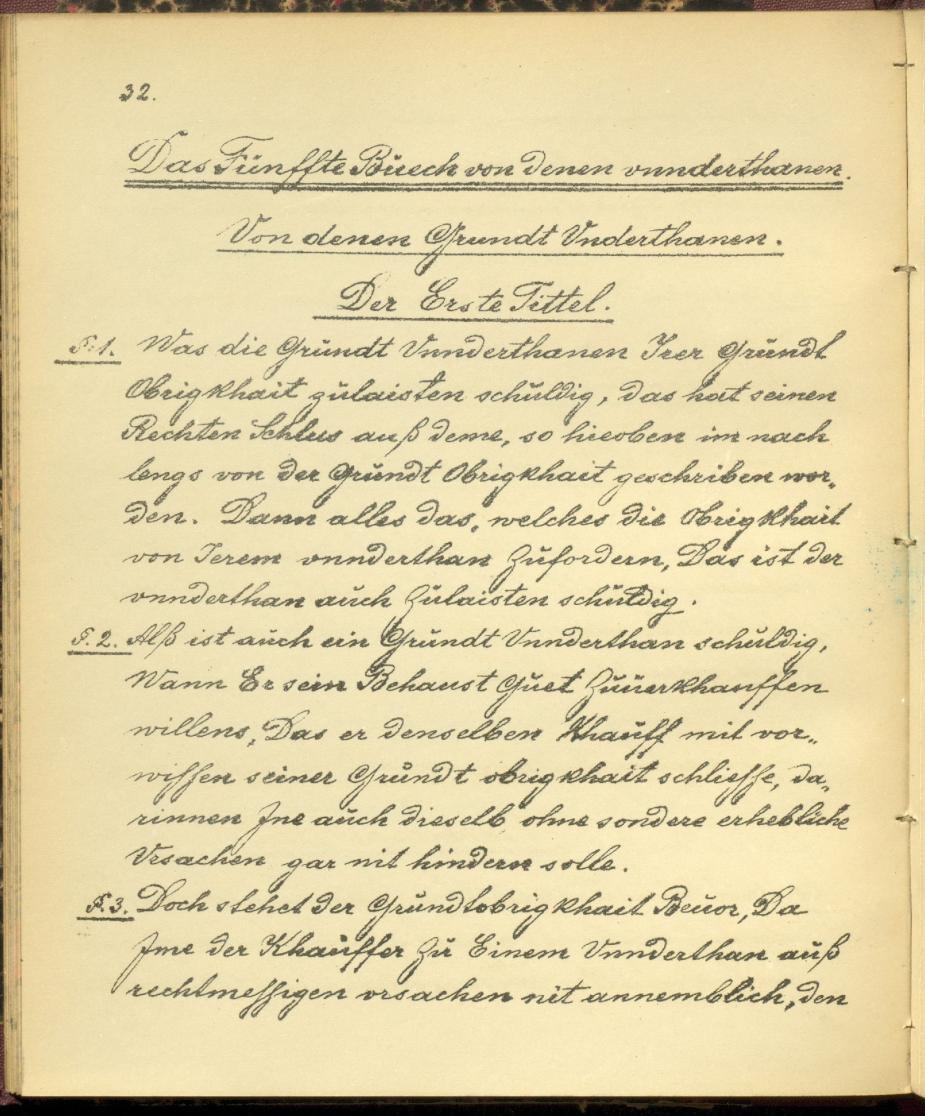 32.
Das Fünffte Büech von denen vnnderthanen.
Von denen Grundt Vnderthanen.
Der Erste Tittel.
§.1. Was die Gründt Vnnderthanen Irer Gründt
Obrigkhait zülaisten schüldig, das hat seinen
Rechten Schlus auß deme, so hieoben im nach
lengs von der Gründt Obrigkhait geschriben wor„
den. Dann alles das, welches die Obrigkhait
von Ierem vnnderthan Züfordern, Das ist der
vnnderthan auch Zülaisten schüldig.
§.2. Alß ist aüch ein Gründt Vnnderthan schüldig,
Wann Er sein Behaust Güet Züüerkhauffen
willens, Das er denselben Khaüff mit vor„
wissen seiner Gründt obrigkhait schliesse, da„
rinnen Jne aüch dieselb ohne sondere erhebliche
Vrsachen gar nit hindern solle.
§.3. Doch stehet der Gründtobrigkhait Beüor, Da
Jme der Khaüffer Zü Einem Vnnderthan aüß
rechtmessigen vrsachen nit annemblich, den